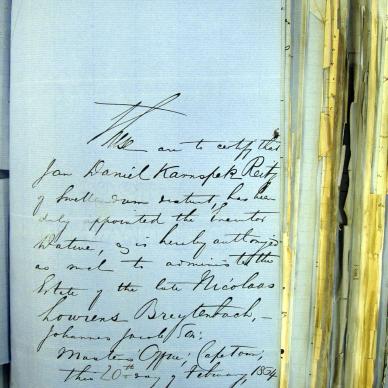 These are to certify that
Jan Daniel Karnspek Reitz
of Swellendam district, has been
duly appointed the Executor
Dative, & is hereby authorized
as such to administer the
Estate of the late Nicolaas
Lourens Breytenbach, -
Johannes Jacob Son:
Masters Office: Cape Town,
This 20th day of February, 1854